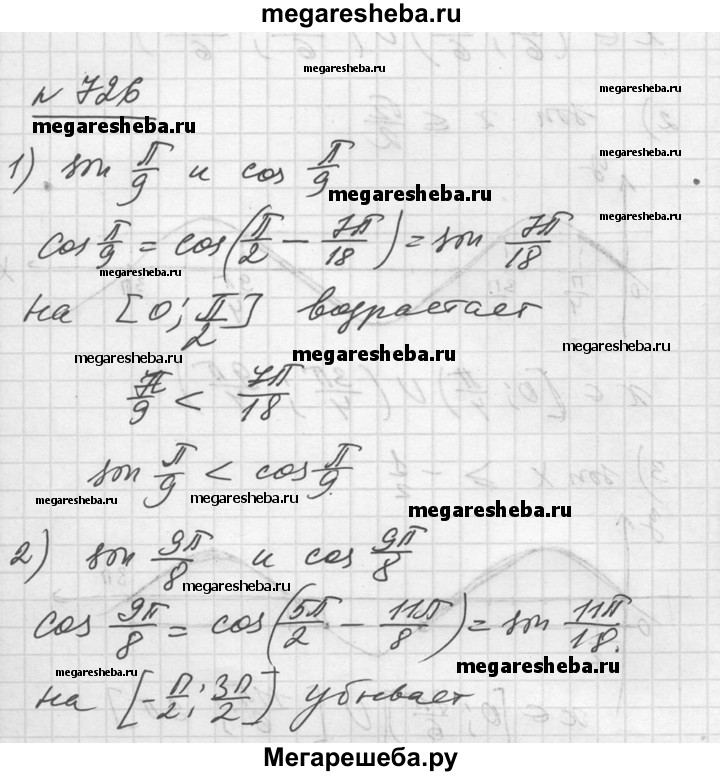 megaresheba.ru
megaresheba.ru
№ 726
megaresheba.ru
megaresheba.ru
1) sin π/9 и cos π/9
megaresheba.ru
megaresheba.ru
cos π/9 = cos(π/2 − 7π/18) = sin 7π/18
megaresheba.ru
megaresheba.ru
на [0; π/2] возрастает
megaresheba.ru
megaresheba.ru
megaresheba.ru
π/9 < 7π/18
sin π/9 < cos π/9
megaresheba.ru
megaresheba.ru
megaresheba.ru
2) sin 9π/8 и cos 9π/8
megaresheba.ru
megaresheba.ru
cos 9π/8 = cos(5π/2 − 11π/8) = sin 11π/18.
megaresheba.ru
megaresheba.ru
на [-π/2; 3π/2] убывает
Мегарешеба.ру